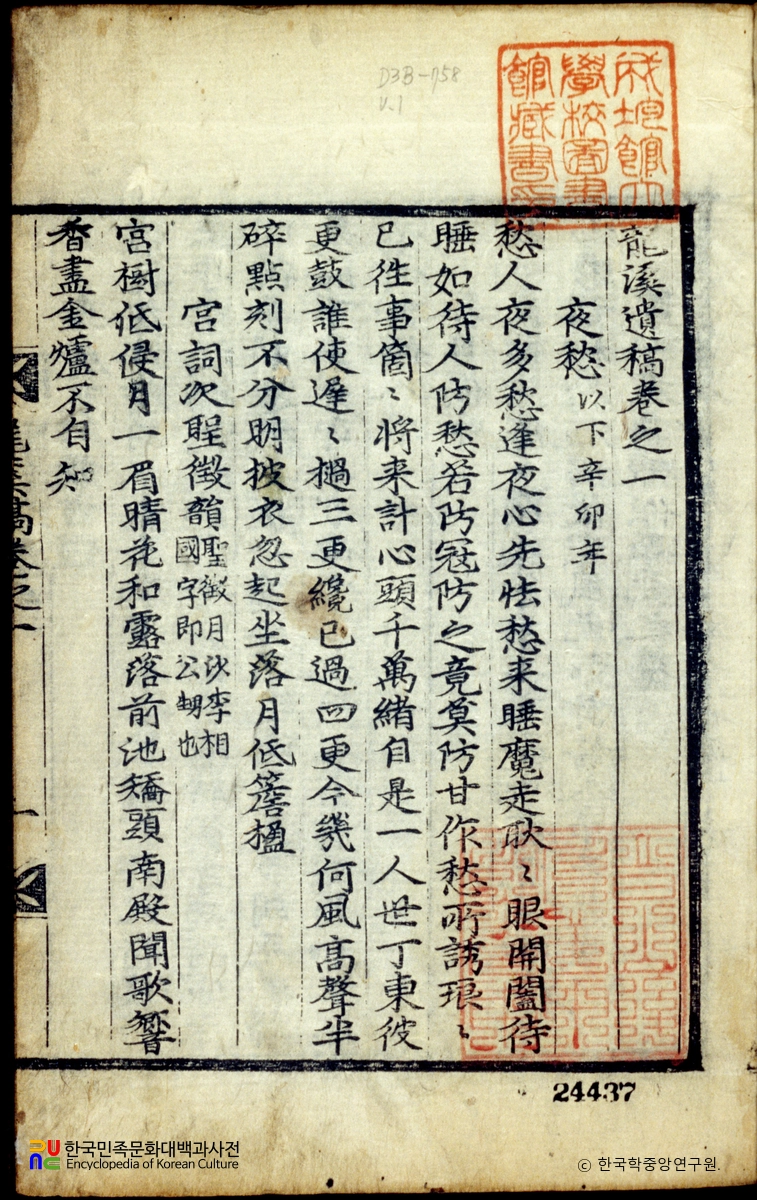 D3B-758
v.1
龍溪遺稿卷之一
夜愁 以下辛卯年
愁人夜多愁逢夜心先怯愁来睡魔走耿〻眼開闔待
睡如待人防愁若防冦防之竟莫防甘作愁所誘琅〻
已徃事箇〻將来計心頭千萬緖自是一人世丁東彼
更鼓誰使遲〻撾三更纔已過四更今幾何風高聲半
碎點刻不分明披衣忽起坐落月低簷楹
宮詞次聖徵韻 聖徵月沙李相
國字即公甥也
宮樹低侵月一眉晴花和露落前池矯頭南殿聞歌響
香盡金爐不自知
稿卷之一
一
24437
한국민족문화대백과사전
Encyclopedia of Korean Culture
ⓒ 한국학중앙연구원.